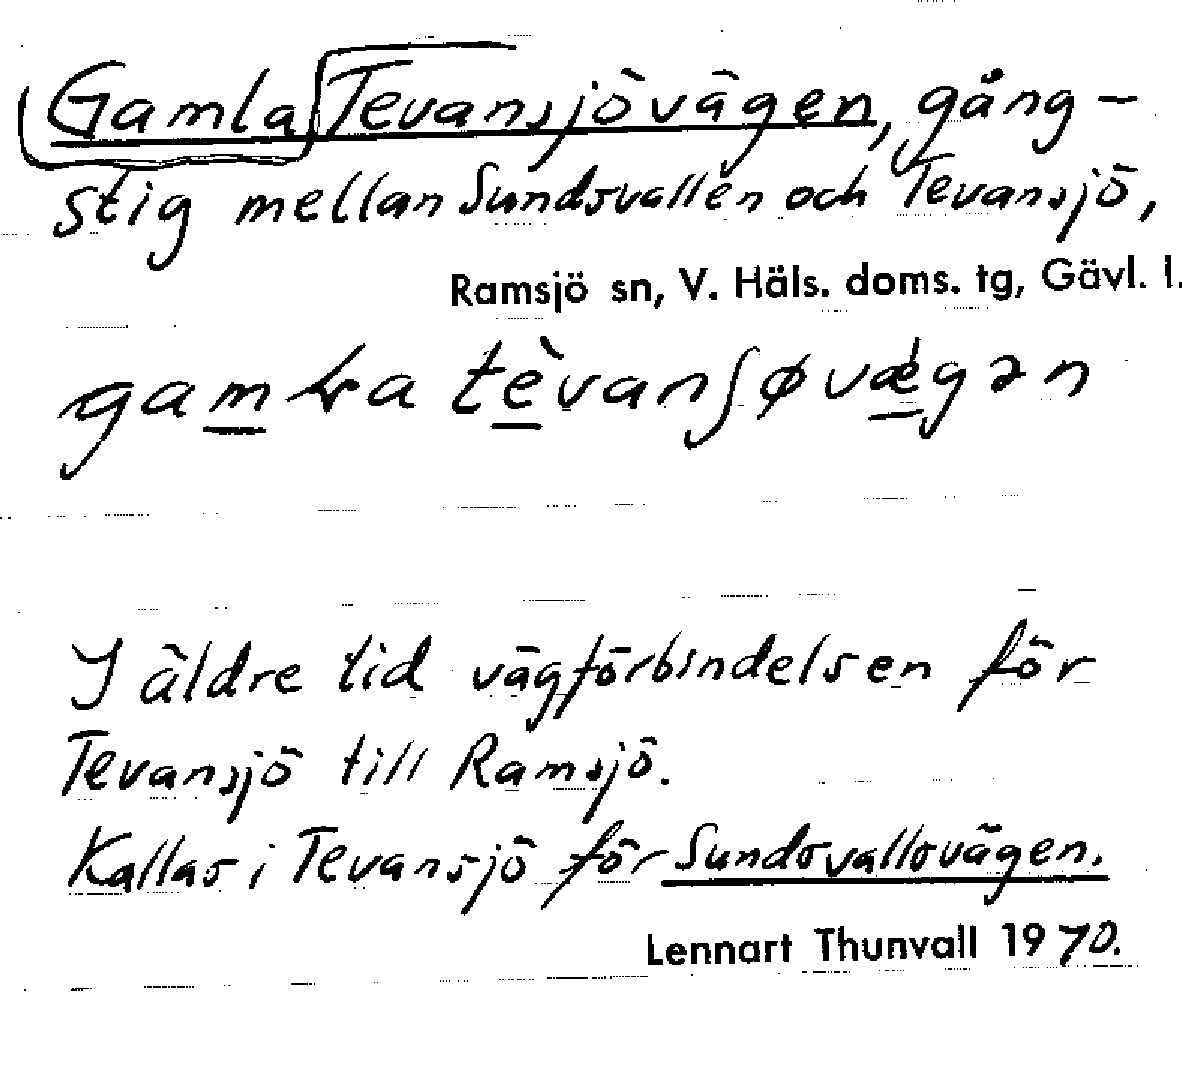 Gamla Tevansjövägen, gång-
stig mellan Sundsvallen och Tevansjö,
Ramsjö sn, V. Häls. doms. tg, Gävl. l.
tèvanʃøvægən
I äldre tid vägförbindelsen för
Tevansjö till Ramsjö.
Kallas i Tevansjö för Sundsvallsvägen.
Lennart Thunvall 1970.